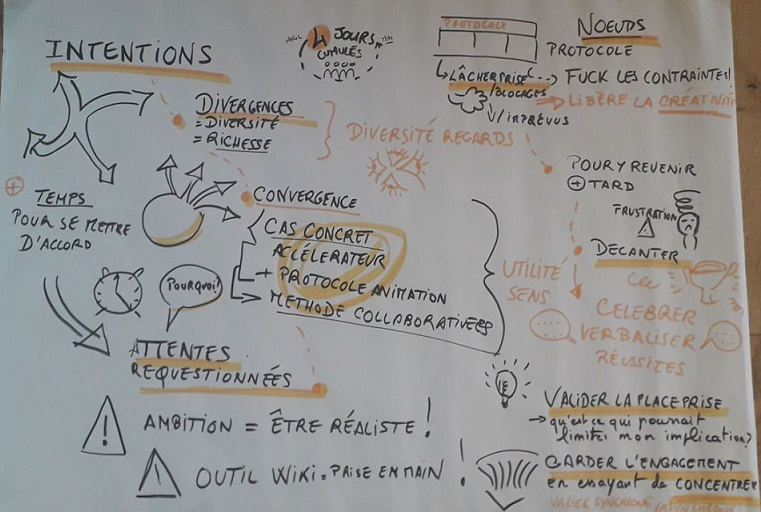 INTENTIONS
4 JOURS
CUMULÉS
PROTOCOLE
NOEUDS
PROTOCOLE
LÂCHER PRISE
FUCK LES CONTRAINTES!
/BLOCAGES
LIBÈRE LA CRÉATIVITÉ
/IMPRÉVUS
DIVERGENCES
= DIVERSITÉ
= RICHESSE
DIVERSITÉ REGARDS
TEMPS
POUR SE METTRE
D'ACCORD
CONVERGENCE
CAS CONCRET
ACCÉLERATEUR
+ PROTOCOLE ANIMATION
METHODE COLLABORATIVE
POURQUOI?
ATTENTES
REQUESTIONNÉES
AMBITION = ÊTRE RÉALISTE!
OUTIL WIKI = PRISE EN MAIN!
POUR Y REVENIR
+ TARD
FRUSTRATION
DECANTER
UTILITÉ
SENS
CELEBRER
VERBALISER
RÉUSSITES
VALIDER LA PLACE PRISE
→ qu'est ce qui pourrait
limiter mon implication?
GARDER L'ENGAGEMENT
en essayant de CONCENTRER